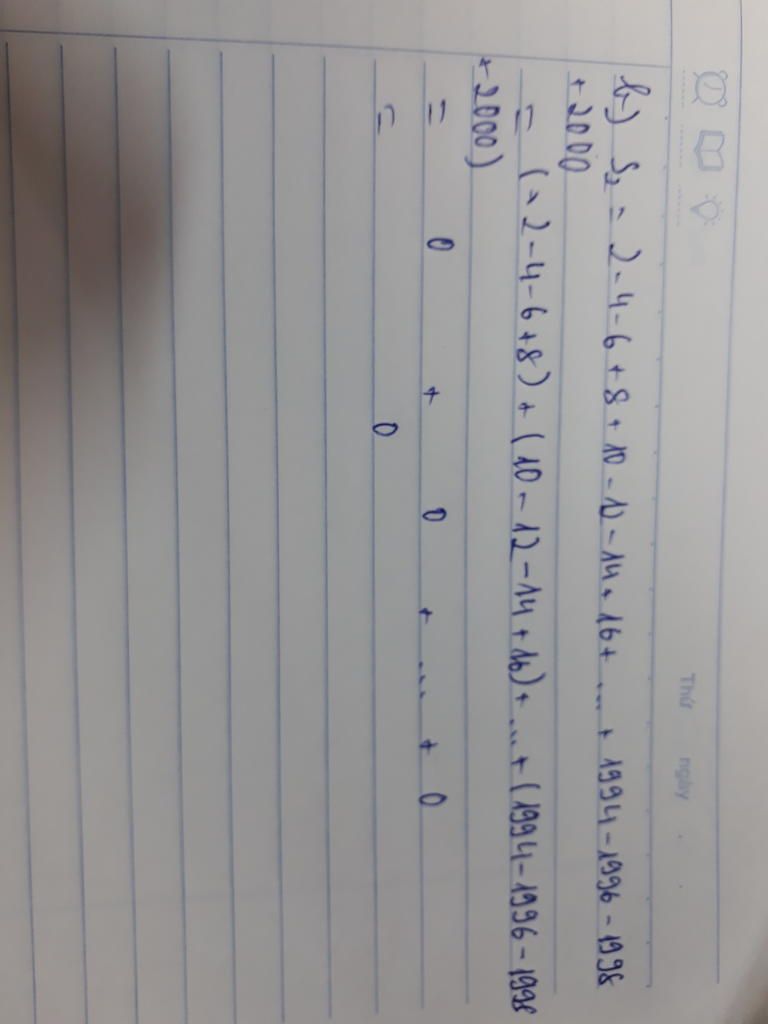 Thứ ngày . .
b) S₂ = 2-4-6+8+10-12-14+16+ ... + 1994-1996-1998
+2000
= (+2-4-6+8)+(10-12-14+16)+...+(1994-1996-1998
+2000)
= 0 + 0 + ... + 0
= 0